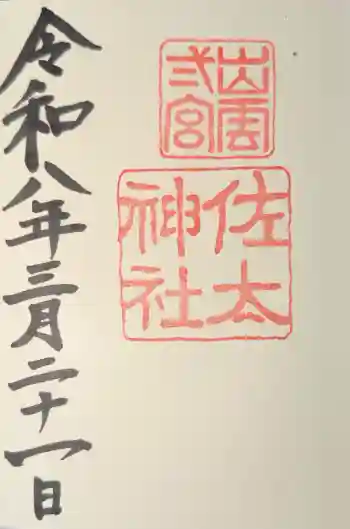 出雲
弐宮
佐太
神社
令和八年三月二十一日